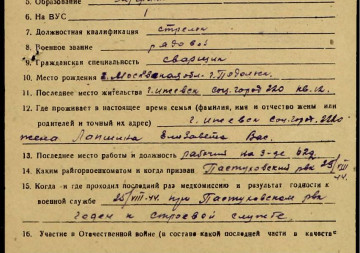 5. Образование
6. На ВУС 1
7. Должностная квалификация стрелок
8. Военное звание рядовой
9. Гражданская специальность сварщик
10. Место рождения г. Московская обл. г. Подольск
11. Последнее место жительства г. Ижевск соц. город 220 кв. 12.
12. Где проживает в настоящее время семья (фамилия, имя и отчество жены или
родителей и точный их адрес) г. Ижевск Соц. город. 220
жена Лапшина Елизавета Вас.
13. Последнее место работы и должность рабочий на з-де 622
14. Каким райгорвоенкоматом и когда призван Пастуховский рвк 25/VIII-44.
15. Когда и где проходил последний раз медкомиссию и результат годности к
военной службе 25/VIII-44. при Пастуховском рвк
годен к строевой службе
16. Участие в Отечественной войне (в составе какой последней части и в качестве